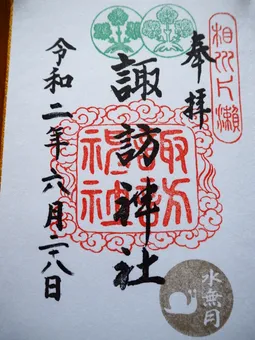 相州片瀬
奉拝
諏訪神社
諏訪
神社
令和二年六月二八日
水無月